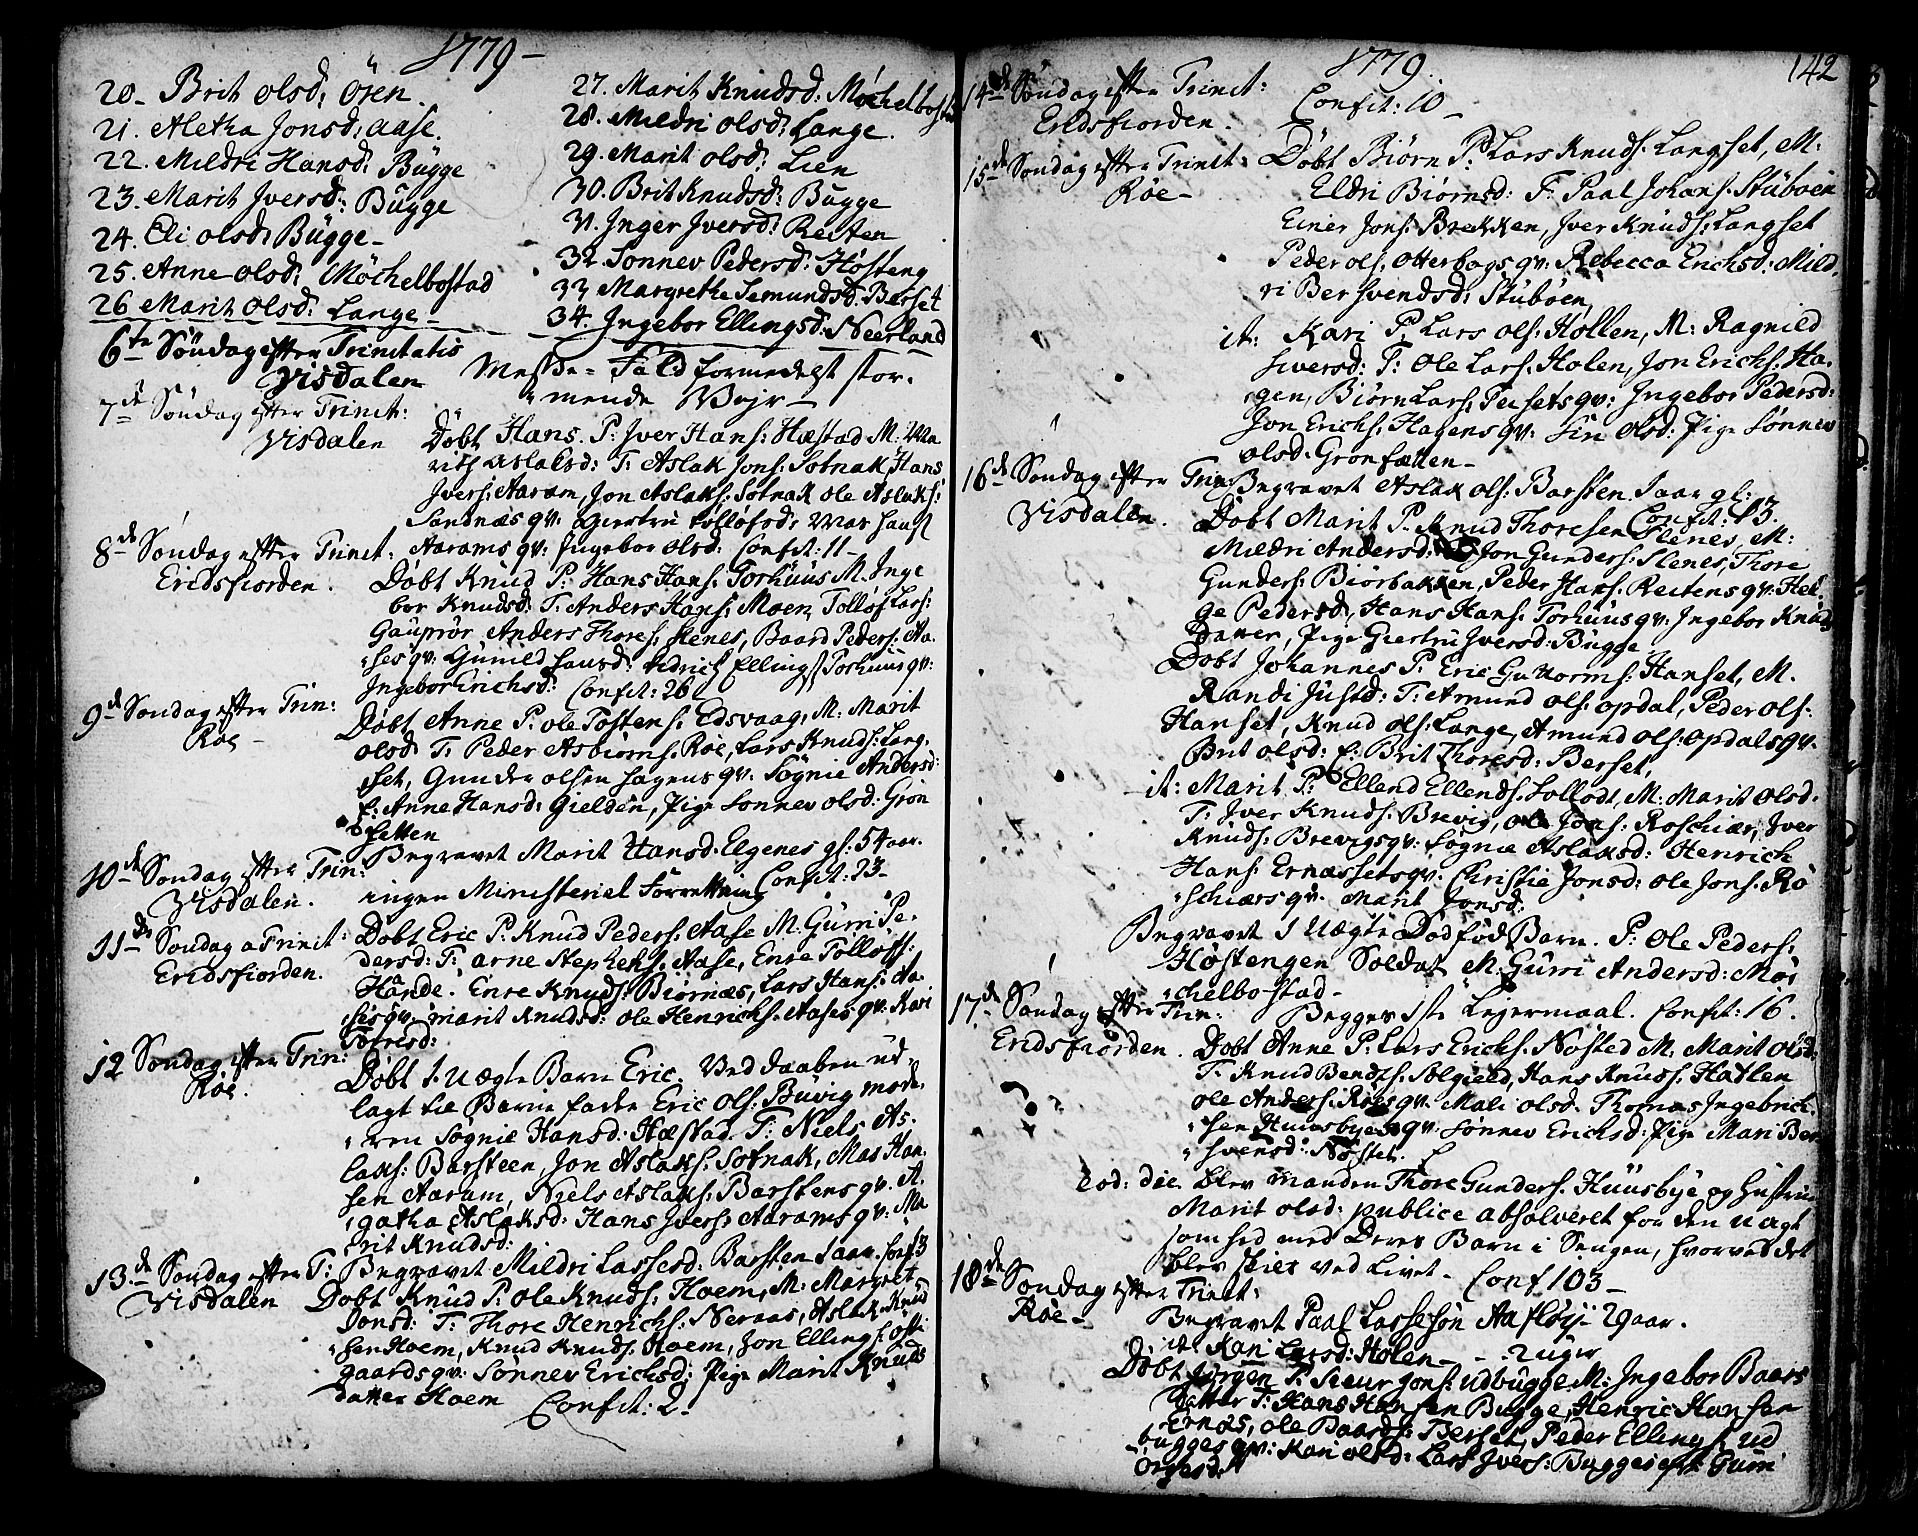 1779 -
20 - Brit olsd: Ören.
21. Aletha Jonsd: Aase.
22. Mildri Hansd: Bügge
23. Marit Jversd: Bügge
24. Eli olsd: Bügge -
25. Anne olsd: Möchelbostad
26 Marit Olsd: Lange -
27. Marit Knudsd: Möchelbostad
28. Mildri olsd: Lange.
29. Marit olsd: Lien
30. Brit Knudsd: Bügge
31. Jnger Jversd: Reiten
32. Sonnev Pedersd: Hösteng
33 Margrethe Semundsd: Berset
34. Jngebor Ellingsd: Neerland
6te Söndag efter Trinitatis
Visdalen
Messe-Fald formedelst stor-
mende Vejr -
7de Söndag efter Trinit:
Visdalen
Döbt Hans. P: Jver Hans: Hæstad M: Ma
rith Aslaksd: T: Aslak Jons: Sotnak Hans
Jvers: Aaram, Jon Aslaks: Sotnak ole Aslaks:
Sandnæs qv: Giertru Tollofsd:
8de Söndag efter Trinit:
Eridsfiorden.
Aarams qv: Jngebor olsd: Confit: 11 -
Döbt Knud P: Hans Hans: Torhuus M. Jnge
bor Knudsd: T: Anders Hans: Moen, Tollof Lars:
Gauprör, Anders Thores: Slenes, Baard Peders: Aa-
ses qv: Gunild
Jngebor Erichsd: Confit: 26
9de Söndag efter Trin:
Röe -
Döbt Anne P: ole Tostens: Edsvaag, M: Marit
olsd T: Peder Asbiörns: Röe, Lars Knuds: Lang-
set, Gunder olsen Hagens qv: Sögnie Andersd:
E: Anne Hansd: Gielden, Pige Sonnev olsd: Grön
fetten
Begravet Marit Hansd: Elgenes gl: 54 aar.
10de Söndag efter Trin:
Visdalen.
Confit: 23 -
ingen Ministerial Forretning
11de Söndag a Trinit:
Eridsfiorden.
Döbt Eric P: Knud Peders: Aase M. Gürri Pe-
dersd: T: arne Stephens: Aase, Enre Tollofs:
Hände. Enre Knuds: Biörnæs, Lars Hans: Aa-
ses qv: marit Knudsd: ole Henrichs: Aases qv: Kari
12 Söndag efter Trin:
Röe.
Döbt 1 Uægte Barn Eric. Ved daaben ud-
lagt til Barne fader Eric Ols: Büvig mode-
ren Sögnie Hansd: Hæstad. T: Niels As-
laks: Barsteen, Jon Aslaks: Sotnak, Mas Han-
sen Aaram, Niels Aslaks: Barstens qv. A-
gatha Aslaksd: Hans Jvers: Aarams qv: Ma
rit Knudsd:
13de Söndag efter T:
Visdalen
Begravet Mildri Lassesd: Barsten 1 aar. Conf 3
Döbt Knud P: Ole Knuds: Hoem, M: Margret
Jonsd: T: Thore Henrichs: Neraas, Aslak Knud
sen Hoem, Knud Knuds: Hoem, Jon Ellings: östi
gaards qv: Sonnev Erichsd: Pige Marit Knuds
datter Hoem
Confit: 2 -
1779
142
14de Söndag efter Trinit:
Eridsfiorden.
Confit: 10 -
15de Söndag efter Trinit:
Röe -
Döbt Biörn P: Lars Knuds: Langset, M:
Eldri Biörnsd: T: Paal Johans: Stüböen
Einer Jons: Brekken, Jver Knuds: Langset
Peder ols: otterbogs qv: Rebecca Erichsd: Mild-
ri Ber Svendsd: Stüböen,
it: Kari P: Lars ols: Hollen, M: Ragnild
Siversd: T: Ole Lars: Holen, Jon Erichs: Ha-
gen, Biörn Lars: Tusets qv: Jngebor Pedersd:
Jon Erichs: Hagens qv: Siri Olsd: Pige Sönnev
olsd: Grönfetten -
16de Söndag efter Trin:
Visdalen.
Begravet Aslak ols: Barsten 1 aar gl:
Confit: 13.
Döbt Marit P. Knud Thoresen Slenes, M:
Mildri Andersd: T: Jon Gunders: Slenes, Thore
Gunders: Biörbakken, Peder Haks: Reitens qv: Hel-
ge Pedersd:, Hans Hans: Torhuus qv: Jngebor Knuds
Daater, Pige Giertru Jversd: Bügge
Döbt Johannes P: Eric Guttorms: Hanset, M.
Randi Justd: T: Amund ols: opdal, Peder ols:
Hanset, Knud ols: Lange, Amund ols: opdals qv.
Brit olsd: E: Brit Thoresd: Berset,
it: Marit P: Ellend Ellends: Sollodt, M: Marit olsd.
T: Jver Knuds: Brevig, ole Jons: Roschiær, Jver
Knuds: Brevigs qv: Sögnie Aslaksd: Henrich
Hans: Ernæssets qv: Christie Jonsd: ole Jons: Rö
schiærs qv: Marit Jonsd:
Begravet 1 Uægte Dödföd Barn. P: Ole Peders:
Höstengen Soldat M: Gürri Andersd: Mö
chelbostad -
17de Söndag efter Trin:
Eridsfiorden.
Begges 1ste Lejermaal. Confit: 16.
Döbt Anne P: Lars Erichs: Nösted M: Marit Olsd:
T: Knud Bendts: Solgield, Hans Knuds: Hatlen
ole Anders: Röes qv: Mali olsd: Thomas Jngebrich-
sen Huusbyes qv: Sonnev Erichsd: Pige Mari Ber
Svensd: Nöstet.
Eod: die blev manden Thore Gunders: Hüüsbye og Hustrue
Marit olsd: publice absolveret for den uagt
somhed med Deres Barn i Sengen, hvorved det
blev skilt ved Livet - Conf 103 -
18de Söndag efter Trinit:
Röe -
Begravet Paal Lassesön Aafloÿ 29 aar.
it Kari Larsd: Holen - - 2 uger
Döbt Jörgen P. Siur Jons: Udbugge M: Jngebor Baars
datter T: Hans Hansen Bugge, Henric Hansen
Ernæs, ole Baards: Berset, Peder Ellings: Ud
bugges qv: Kari olsd: Lars Jvers: Bugges qv: Gürri